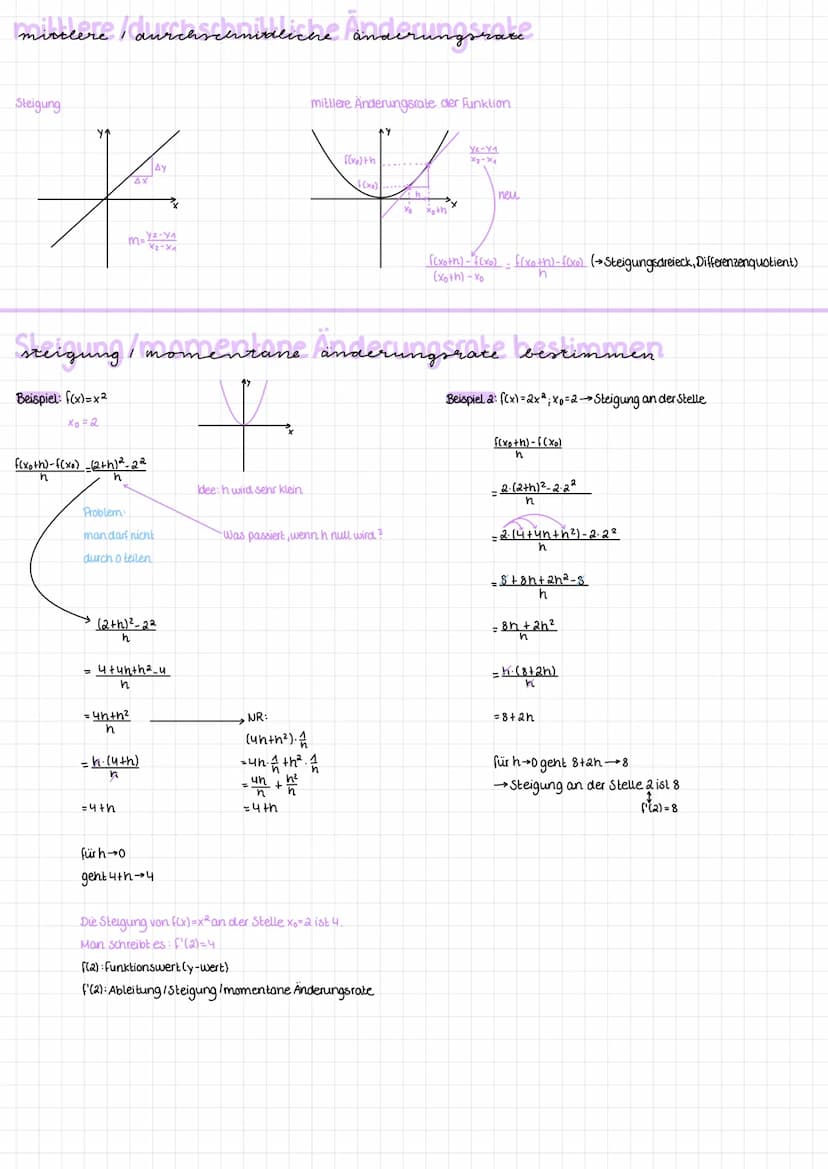 mittlere / durchschnittliche Änderungsrate
Steigung
y
Δy
Δx
x
m = (y2-y1)/(x2-x1)
mittlere Änderungsrate der Funktion
y
f(x₀)+h
f(x₀)
h
x₀ x₀+h
x
(y2-y1)/(x2-x1)
neu
(f(x₀+h)-f(x₀))/((x₀+h)-x₀) = (f(x₀+h)-f(x₀))/h (→Steigungsdreieck, Differenzenquotient)
Steigung / momentane Änderungsrate bestimmen
Beispiel: f(x)=x²
x₀=2
y
x
(f(x₀+h)-f(x₀))/h = ((2+h)²-2²)/h
Idee: h wird sehr klein
Problem:
man darf nicht
durch 0 teilen
Was passiert, wenn h null wird?
((2+h)²-2²)/h
= (4+4h+h²-4)/h
= (4h+h²)/h
= (h·(4+h))/h
= 4+h
NR:
(4h+h²)·1/h
= 4h·1/h + h²·1/h
= 4h/h + h²/h
= 4+h
für h→0
geht 4+h→4
Die Steigung von f(x)=x² an der Stelle x₀=2 ist 4.
Man schreibt es: f'(2)=4
f(2): Funktionswert (y-wert)
f'(2): Ableitung/Steigung/momentane Änderungsrate
Beispiel 2: f(x)=2x²; x₀=2 → Steigung an der Stelle
(f(x₀+h)-f(x₀))/h
= (2·(2+h)²-2·2²)/h
= (2·(4+4h+h²)-2·2²)/h
= (8+8h+2h²-8)/h
= (8h+2h²)/h
= (h·(8+2h))/h
= 8+2h
für h→0 geht 8+2h→8
→ Steigung an der Stelle 2 ist 8
↕
f'(2)=8